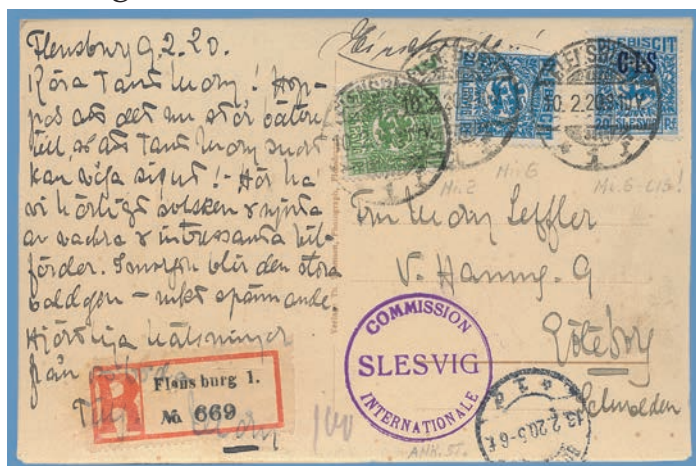 Flensburg 9.2.20.
Kära Tant Mary! Hop-
pas att det nu står bättre
till, så att Tant Mary snart
kan säga sigut! - Här ha
vi härligt solsken & njuta
av vackra & intressanta bil-
färder. Imorgon blir den stora
valdagen - rikt spännande.
Hjärtliga hälsningar
från
Mary
Einschreiben!
PLEBISCIT
C·I·S
20 SLESVIG Pf
10.2.20
Mi.2
Mi.6
Mi.6-CIS!
Fru Mary Leffler
V. Hamng. 9
Göteborg
Schweden
COMMISSION
SLESVIG
INTERNATIONALE
R
Flensburg 1.
№ 669
13.2.20.5-6
ANK.ST.